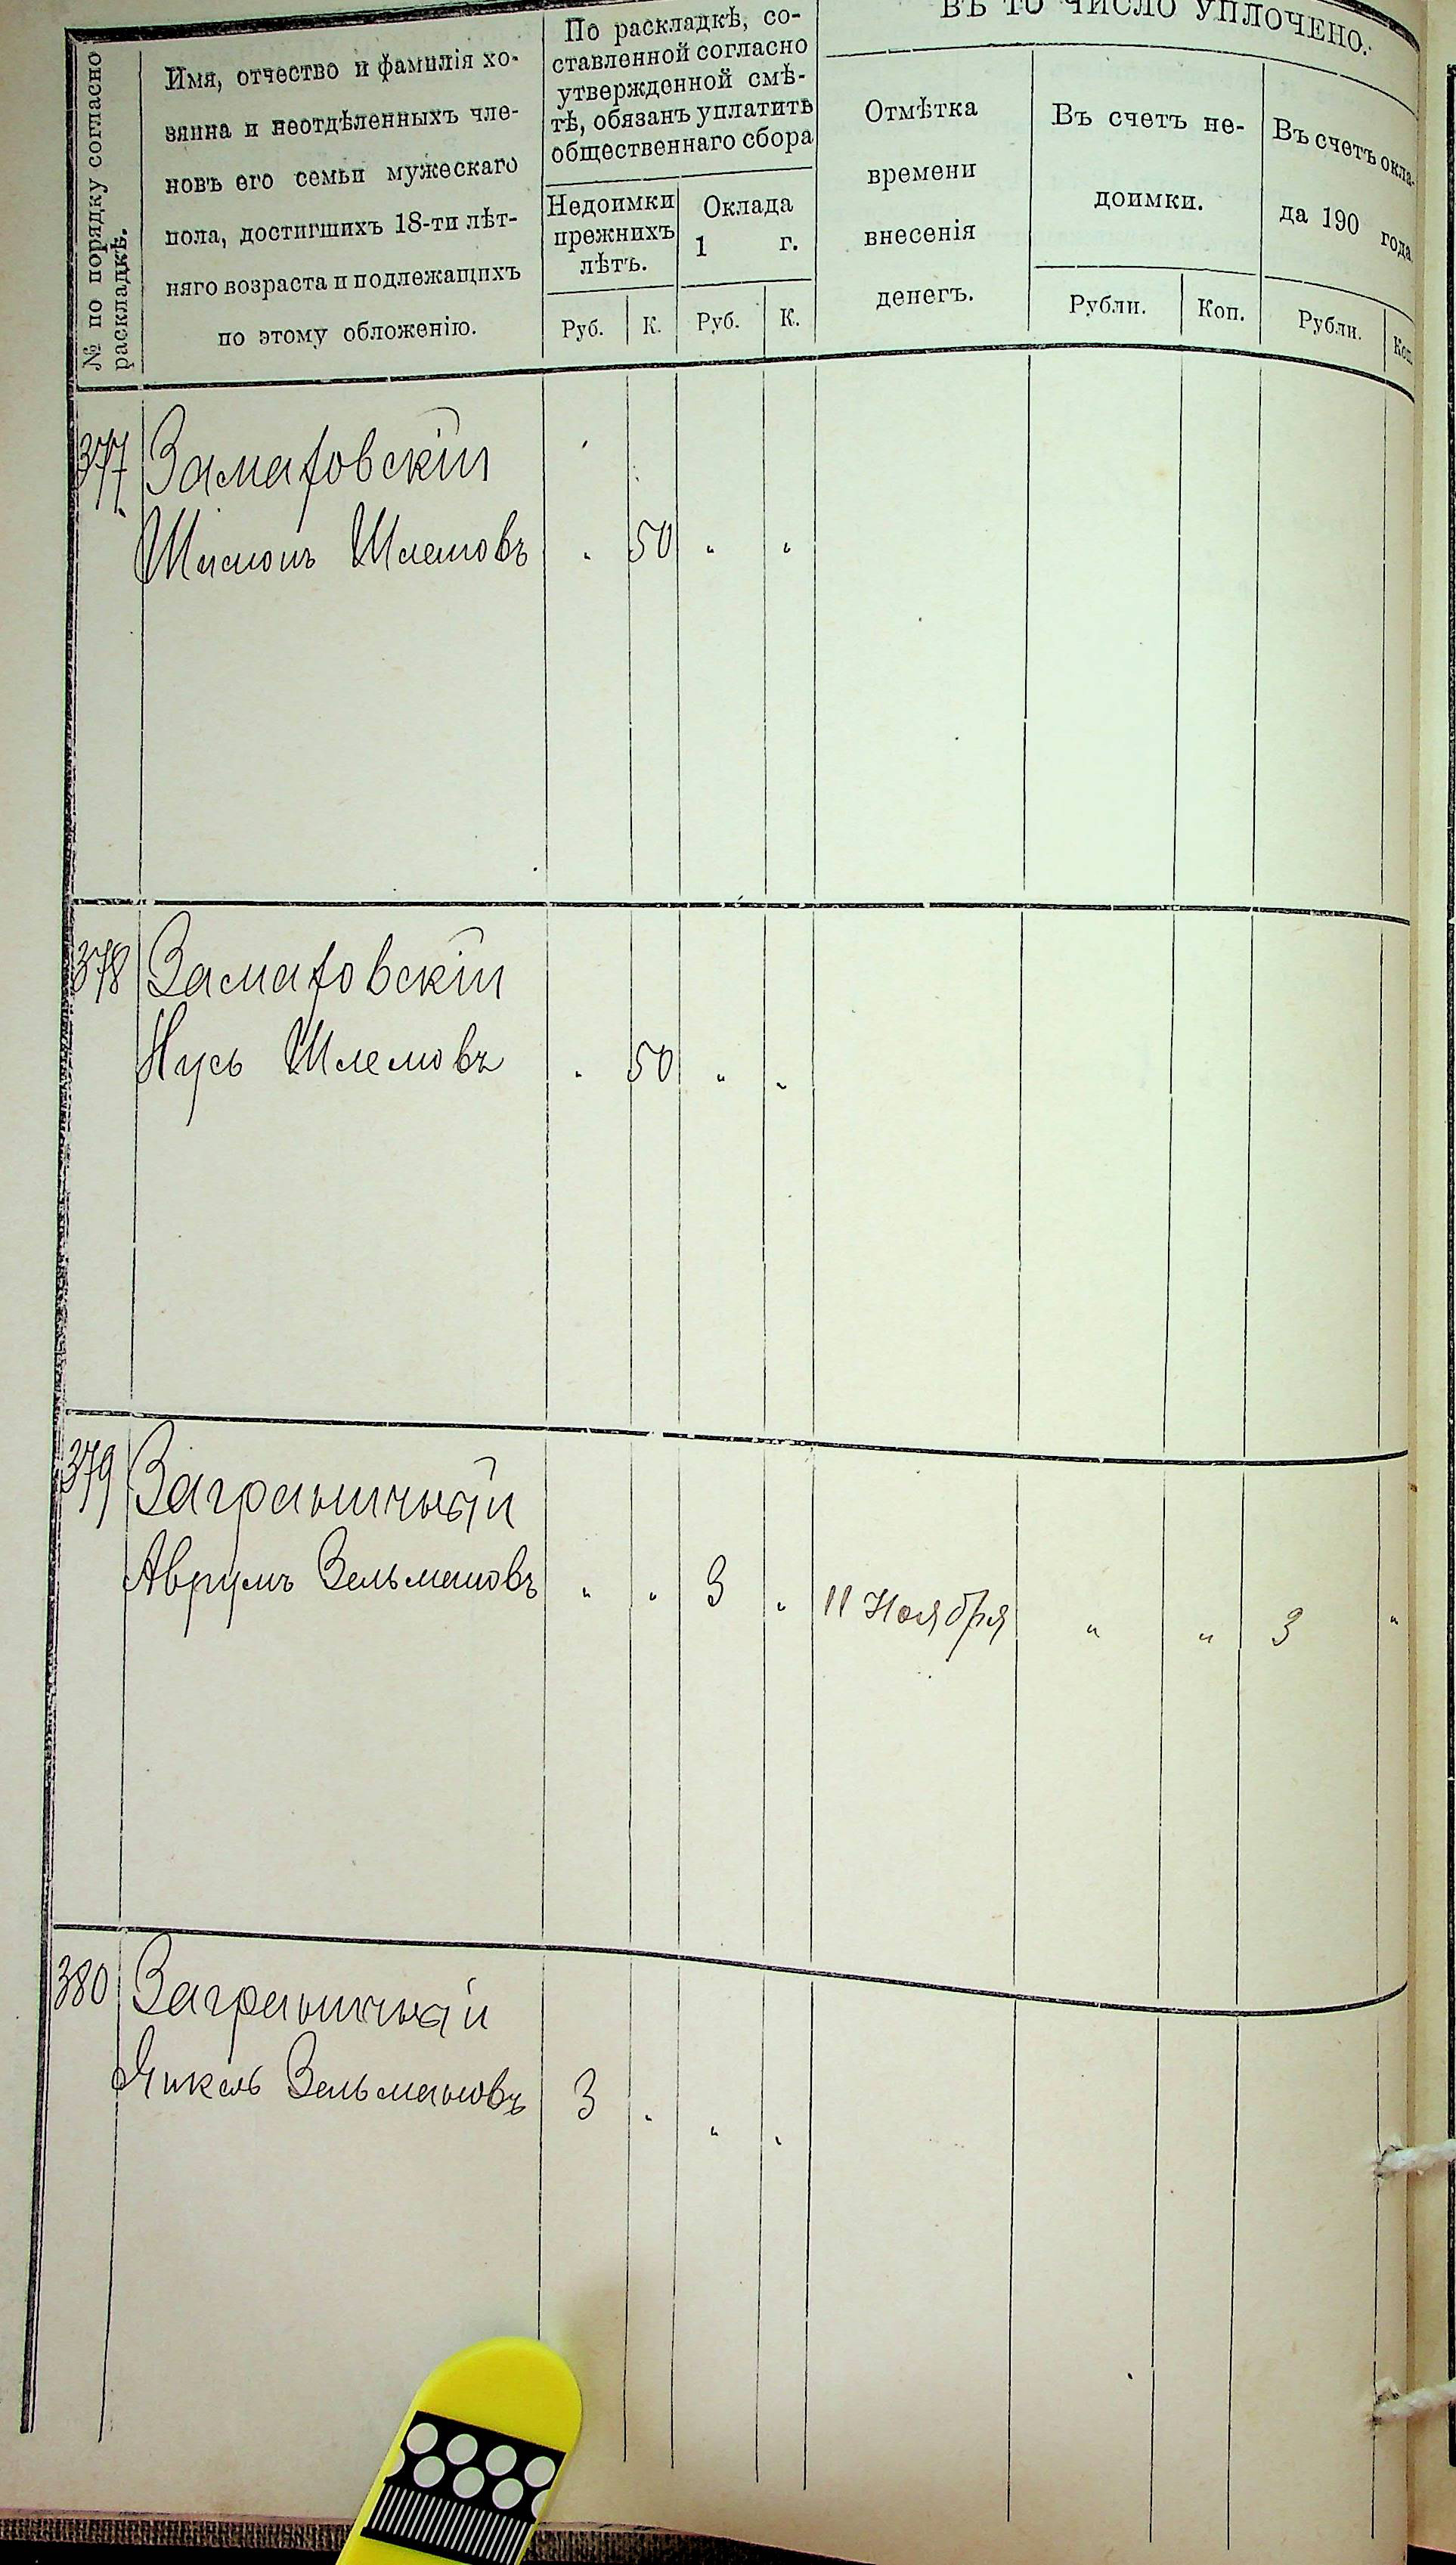 № по порядку согласно
раскладкѣ.
Имя, отчество и фамилія хо-
зяина и неотдѣленныхъ чле-
новъ его семьи мужескаго
пола, достигшихъ 18-ти лѣт-
няго возраста и подлежащихъ
по этому обложенію.
По раскладкѣ, со-
ставленной согласно
утвержденной смѣ-
тѣ, обязанъ уплатить
общественнаго сбора
Недоимки
прежнихъ
лѣтъ.
Оклада
1 г.
Руб. К. Руб. К.
ВЪ ТО ЧИСЛО УПЛОЧЕНО.
Отмѣтка
времени
внесенія
денегъ.
Въ счетъ не-
доимки.
Рубли. Коп.
Въ счетъ окла-
да 190 года
Рубли. Коп.
377 Заматовскій
Шлемовъ „ 50 „ „
378 Заматовскій
Нусь Шлемовъ „ 50 „ „
379 Заграничный
Аврумъ Зельмановъ „ „ 3 „ 11 Ноября „ „ 3 „
380 Заграничный
Янкель Зельмановъ 3 „ „ „